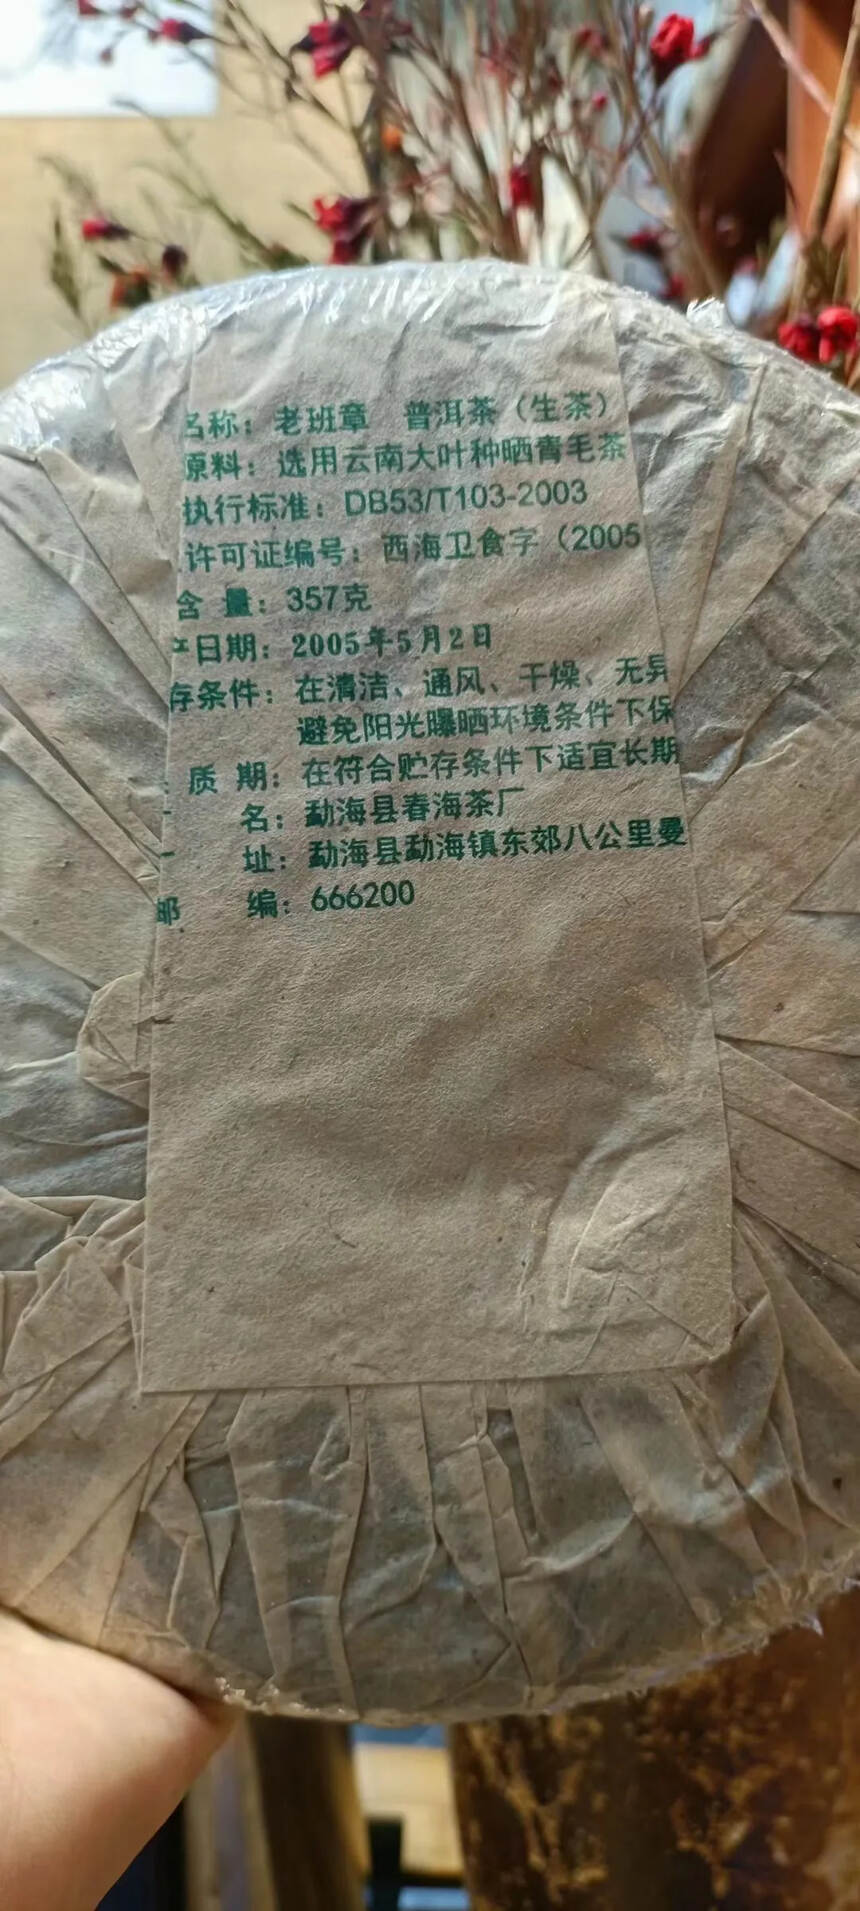 名称：老班章 普洱茶（生茶）
原料：选用云南大叶种晒青毛茶
执行标准：DB53/T103-2003
许可证编号：西海卫食字（2005
含 量：357克
产日期：2005年5月2日
存条件：在清洁、通风、干燥、无异
避免阳光曝晒环境条件下保
质 期：在符合贮存条件下适宜长期
名：勐海县春海茶厂
址：勐海县勐海镇东郊八公里曼
邮 编：666200